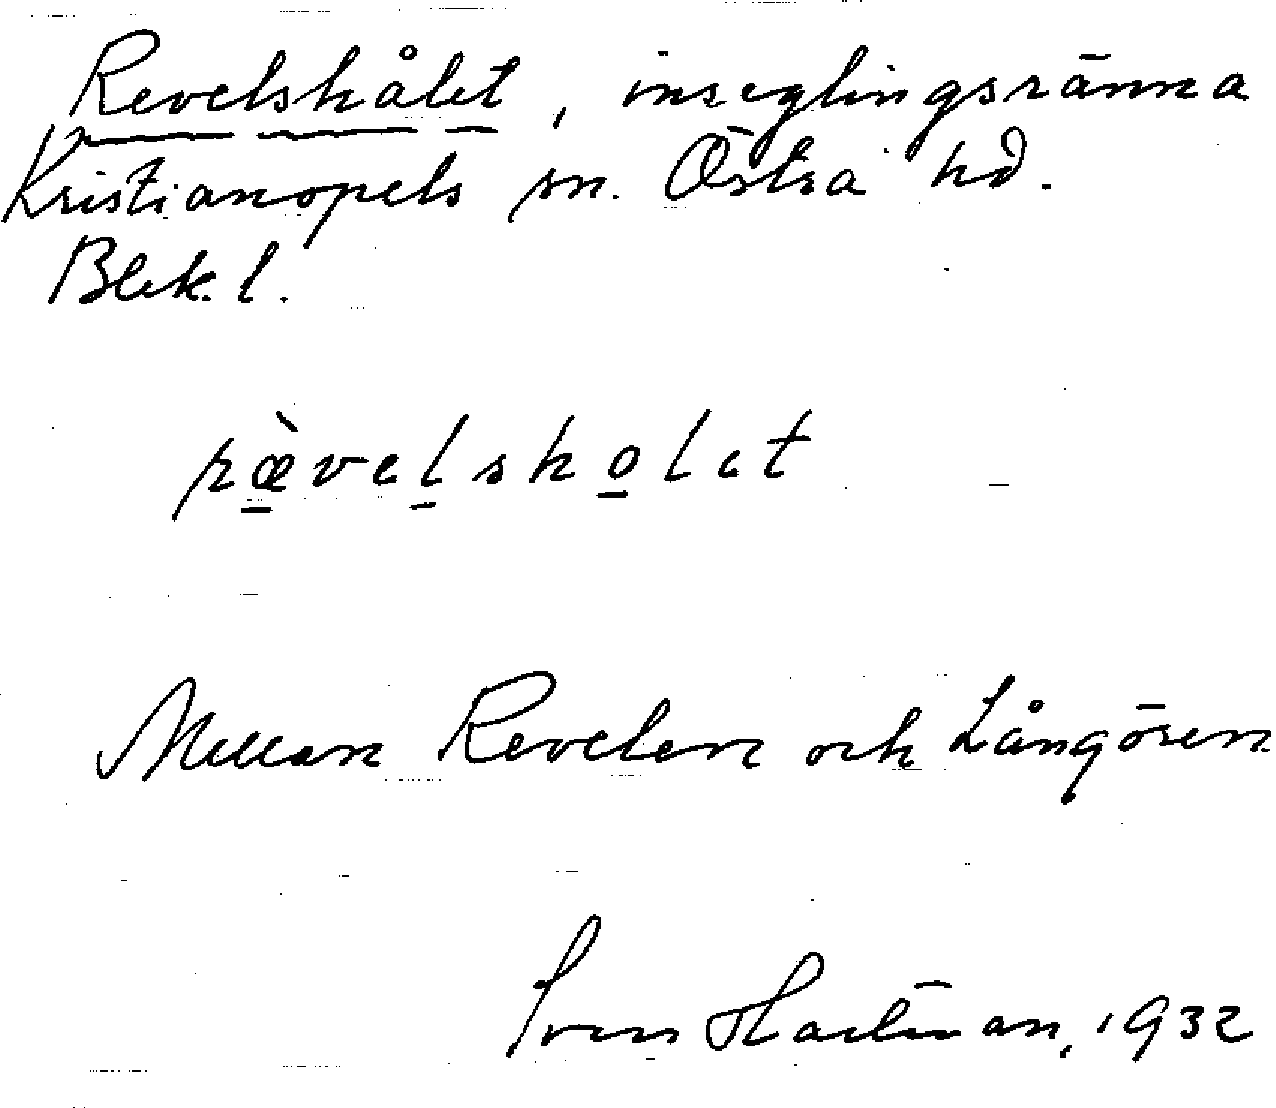 Revelshålet, inseglingsränna
Kristianopels sn. Östra hd.
Blek. l.
ræ̀velsholet
Mellan Revelen och Långören
Sven Hartman, 1932